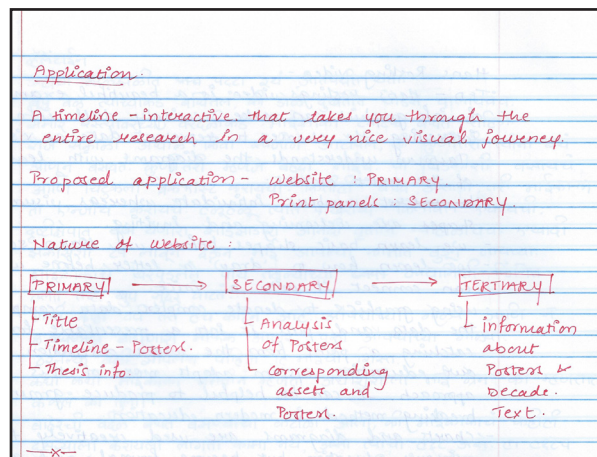 Application.
A timeline - interactive. that takes you through the
entire research in a very nice visual journey.
Proposed application - Website : PRIMARY.
Print panels : SECONDARY
Nature of website :
PRIMARY → SECONDARY → TERTIARY
Title
Timeline - Posters.
Thesis info.
Analysis
of Posters
corresponding
assets and
Posters.
information
about
Posters &
Decade.
Text.